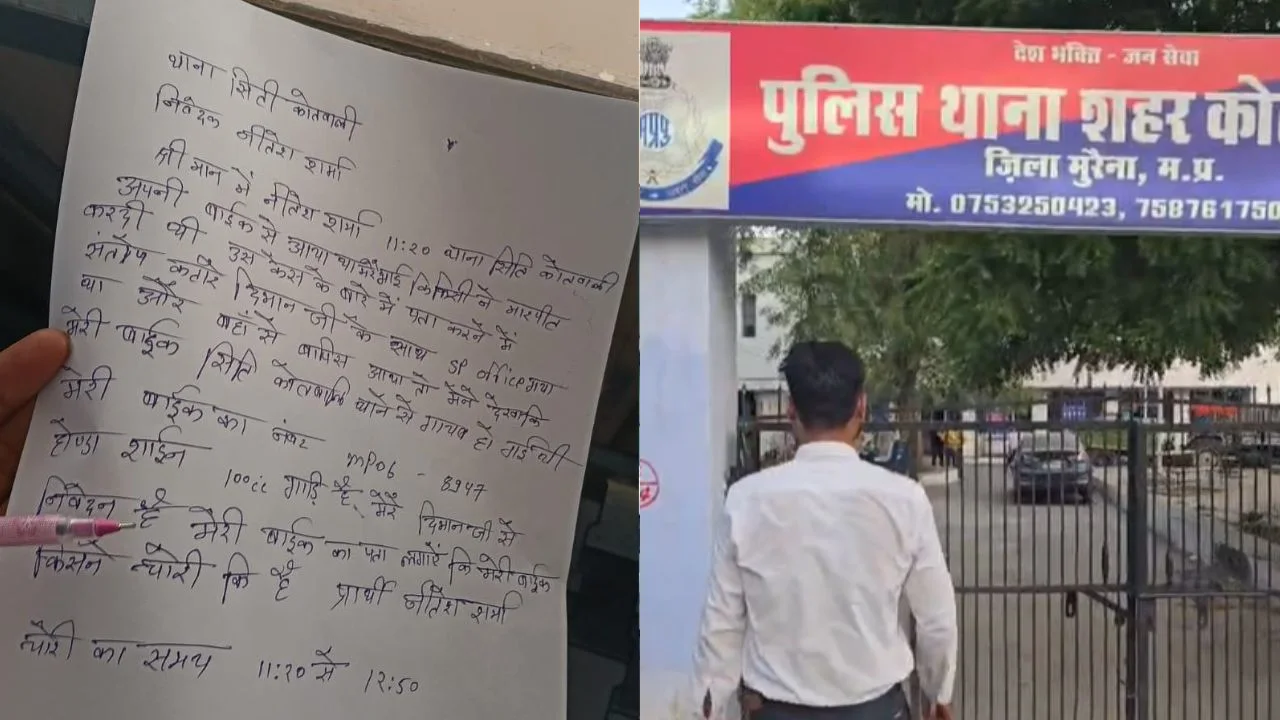 थाना सिती कोतवाली
निवेदक नीतेश शर्मा
श्री मान में नीतेश शर्मा 11:20 थाना सिति कोतवाली
अपनी बाईक से आया था मेरे भाई कि किसी ने मारपीत
करदी थी उस केस के बारे में पता करने में
संतोष दिमान जी के साथ SP office गया
था और वहाँ से बापिस आया तो मैंने देखाकि
मेरी बाईक सिति कोतबालि थाने से गायब हो गई थी
मेरी बाईक का नंबर MP06 - 8947
होण्डा शाईन 100cc गाडि है, मेरे दिमानजी से
निवेदन है मेरी बाईक का पता लगाऐं कि मेरी बाईक
किसने चोरी कि है प्रार्थी नीतेश शर्मा
चोरी का समय 11:20 से 12:50
देश भक्ति - जन सेवा
पुलिस थाना शहर को
ज़िला मुरैना, म.प्र.
मो. 0753250423, 758761750